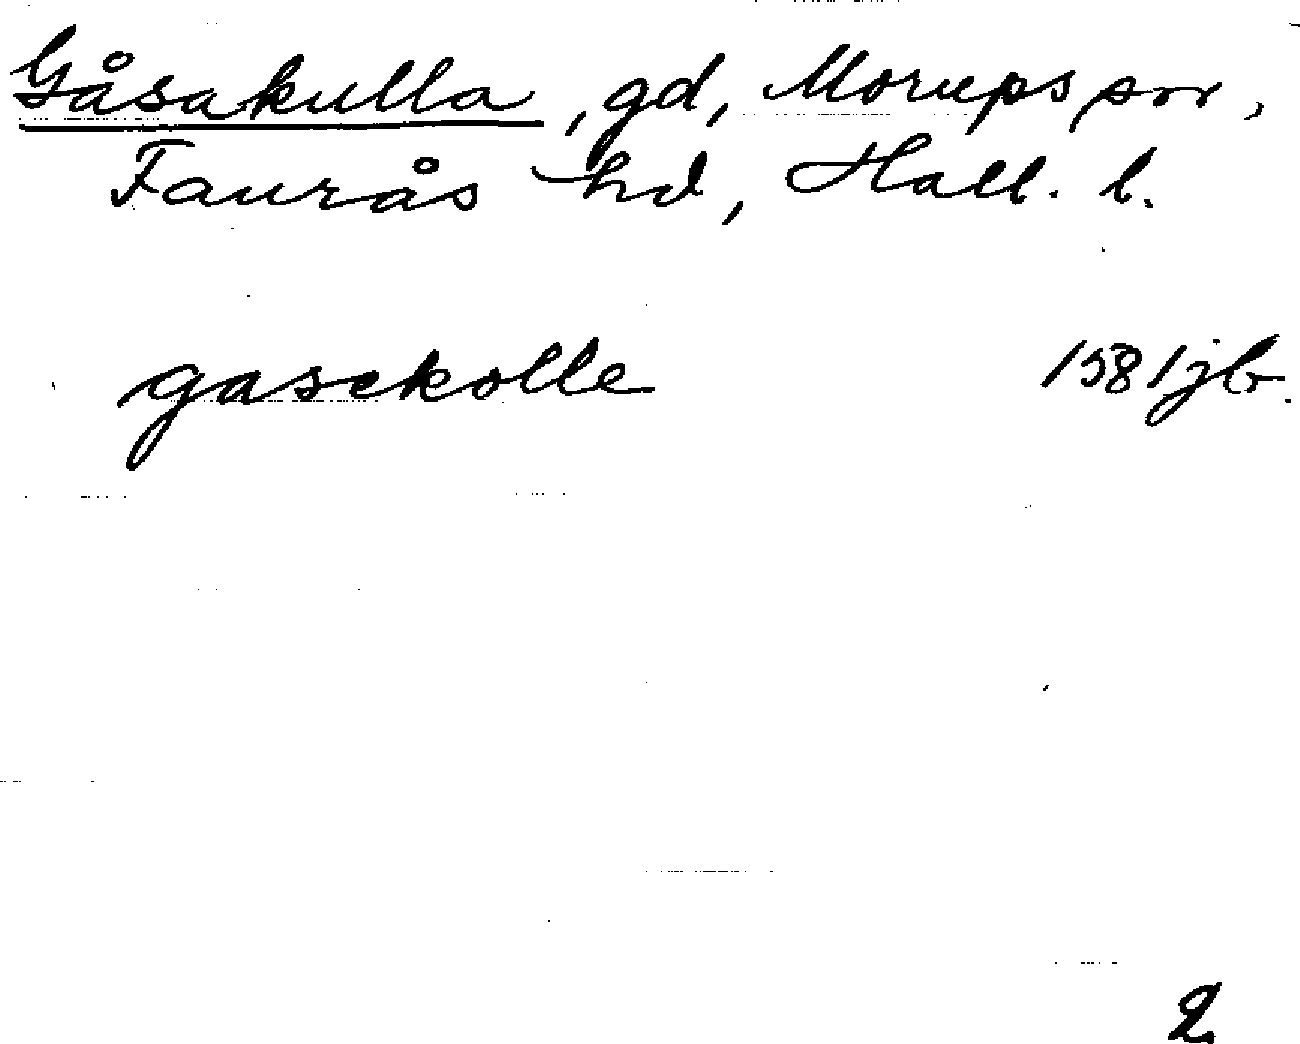 Gåsakulla, gd, Morups sn,
Faurås hd, Hall. l.
gasekolle 1581 jb.
2